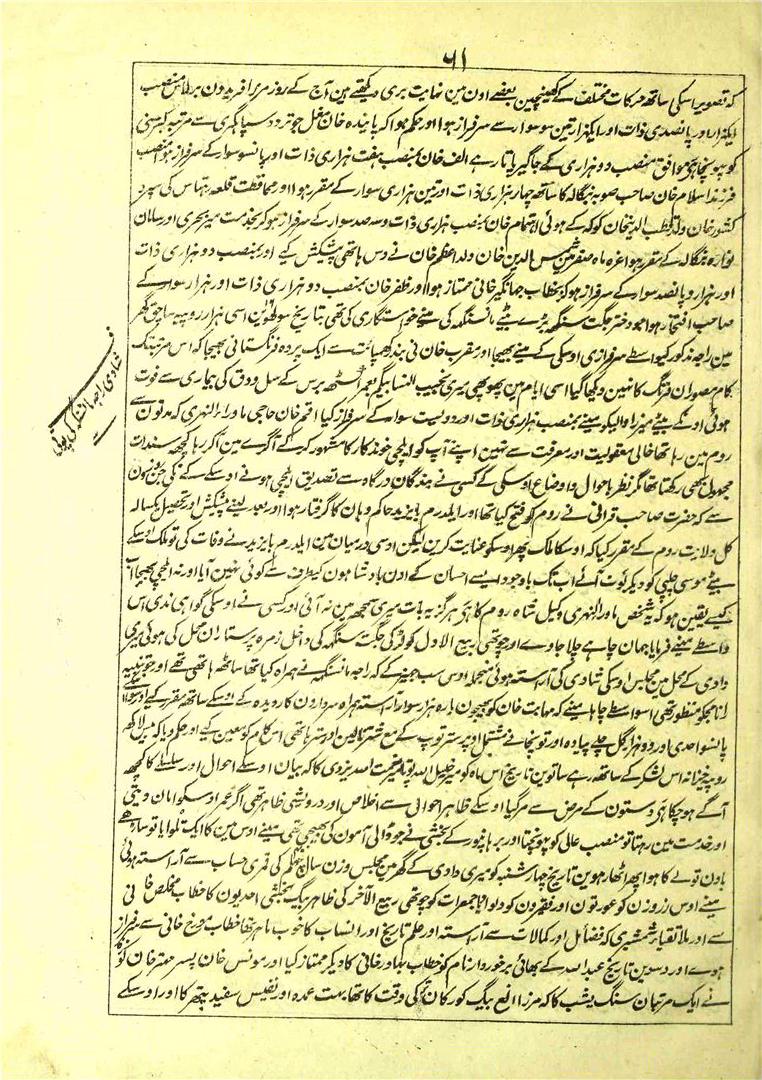 ٦١
کہ تصویر اسکی ساتھ حرکات مختلف کے کھینچین بعضے اون مین نہایت بری دیکھتے ہین آج کے روز مرزا فریدون برلاس منصب
ایکہزار اور پانصدی ذات اور ایکہزار تین سو سوار سے سرفراز ہوا اور حکم ہوا کہ پایندہ خان مغل جو تردد سپاہگری سے مرتبہ کبرسنی
کو پہونچا ہی موافق منصب دو ہزاری کے جاگیر پاتا رہے الف خان بمنصب ہفت ہزاری ذات اور پانسو سوار کے سرفراز ہوا منصب
فرزند اسلام خان صاحب صوبہ بنگالہ کا ساتھ چہار ہزاری ذات اور تین ہزاری سوار کے مقرر ہوا اور محافظت قلعہ رہتاس کی سپرد
کشور خان ولد قطب الدینخان کوکہ کے ہوئی اہتمام خان بمنصب ہزاری ذات و سہ صد سوار کے سرفراز ہو کر بخدمت میر بحری اور سامان
نوارہ بنگالہ کے مقرر ہوا غرہ ماہ صفر مین شمس الدین خان ولد اعظم خان نے دس ہاتھی پیشکش کیے اور بمنصب دو ہزاری ذات
اور ہزار و پانصد سوار کے سرفراز ہو کر بخطاب جہانگیر خانی ممتاز ہوا اور ظفر خان بمنصب دو ہزاری ذات اور ہزار سوار کے
صاحب افتخار ہوا جو دختر جگت سنگہ بڑے بیٹے مانسنگہ کی مینے خواستگاری کی تھی بتاریخ سولھوین اسی ہزار روپیہ ساچق گھر
مین راجہ مذکور کیواسطے سرفرازی اوسکی کے مینے بھیجا اور مقرب خان نی بندر کھنپائت سے ایک پردہ فرنگستانی بھیجا کہ اس مرتبتک
کام مصوران فرنگ کا نہین دیکھا گیا اسی ایام مین پھوپھی میری نجیب النسا بیگم بعمر اکسٹھ برس کے سل و دق کی بیماری سے فوت
ہوئی اونکے بیٹے میرزا والیکو مینے بمنصب ہزاری ذات اور دویست سوار کے سرفراز کیا اقم خان حاجی ماوراء النہری کہ مدتون سے
روم مین رہا تھا خالی معقولیت اور معرفت سے نہین اپنے آپ کو ایلچی خوندکار کا مشہور کر کے آگرے مین آکر رہا کچھ سندات
مجہول بھی رکھتا تھا مگر نظر باحوال و اوضاع اوسکی کے کسی نے بندگان درگاہ سے تصدیق ایلچی ہونے اوسکے کے نکی جن دنون
سے کہ حضرت صاحب قرانی نے روم کو فتح کیا تھا اور ایلدرم بایزید حاکم وہان کا گرفتار ہوا اور بعد لینے پیشکش اور تحصیل یکسالہ
کل ولایت روم کے مقرر کیا کہ اوسکا ملک پھر اوسکو عنایت کرین لیکن اوسی درمیان مین ایلدرم بایزید نے وفات کی تو ملک اوسکے
بیٹے موسی چلپی کو دیکر لوٹ آئے اب تک باوجود ایسے احسان کے اون بادشاہون کیطرف سے کوئی نہین آیا اور نہ ایلچی بھیجا اب
کیسے یقین ہو کہ یہ شخص ماوراء النہری وکیل شاہ روم کا ہی ہرگز یہ بات میری سمجھ مین نہ آئی اور کسی نے اوسکی گواہی ندی اس
واسطے مینے فرمایا جہان چاہے چلا جاوے اور چوتھی ربیع الاول کو لڑکی جگت سنگہ کی داخل زمرہ پرستاران محل کی ہوئی میری
دادی کے محل مین مجلس اوسکی شادی کی آراستہ ہوئی منجملہ اوس سب جہیز کے کہ راجہ مانسنگہ نے ہمراہ کیا تھا ساٹھ ہاتھی تھے اور جو تنبیہ
رانا مجکو منظور تھی اسواسطے چاہا مینے کہ مہابت خان کو بھیجون بارہ ہزار سوار آراستہ ہمراہ سردارون کاردیدہ کے اوسکے ساتھ مقرر کیے اور سوا اسکے
پانسو احدی اور دو ہزار گل چلے پیادہ اور توپخانے مشتمل اوپر ستر توپ کے مع شترنالین اور ستر ہاتھی اس کام کو معین کیے اور حکم دیا کہ بیس لاکھ
روپیہ خزانہ اس لشکر کے ساتھ رہے ساتوین تاریخ اس ماہ کو میر خلیل اللہ پوتا میر نعمت اللہ یزدی کا کہ بیان اوسکے احوال اور سلسلے کا کچھ
آگے ہو چکا ہی دستون کے مرض سے مر گیا اوسکے ظاہر احوال سے اخلاص اور درویشی ظاہر تھی اگر عمر اوسکو امان دیتی
اور خدمت مین رہتا تو منصب عالی کو پہونچتا اور برہانپور کے بخشی نے جو ڈالی آمون کی بھیجی تھی مینے اوس مین کا ایک تلوایا تو ساڑھے
باون تولے کا ہوا پھر اٹھارہوین تاریخ چہارشنبہ کو میری دادی کے گھر مین مجلس وزن سال چہلم کی قمری حساب سے آراستہ ہوئی
مینے اوس زر وزن کو عورتون اور فقیرون کو دلوا دیا جمعرات کو چوتھی ربیع الآخر کی ظاہر بیگ بخشی احدیون کا خطاب مخلص خانی
سے اور ملا تقیاء شمشیری کہ فضائل اور کمالات سے آراستہ اور علم تاریخ اور انساب کا خوب ماہر تھا خطاب مورخ خانی سے سرفراز
ہوے اور دسوین تاریخ عبداللہ کے بھائی برخوردار نام کو خطاب بہادر خانی کا دیکر ممتاز کیا اور مونس خان پسر مہتر خان کو
نے ایک مرتبان سنگ یشب کا کہ مرزا الغ بیگ گورکان کے وقت کا تھا بہت عمدہ اور نفیس سفید پتھر کا اور اوسکے
شادی راجہ مانسنگہ کی پوتی